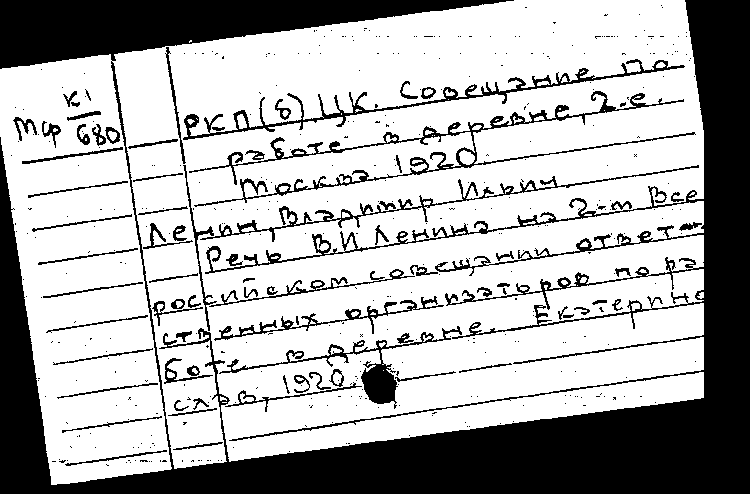 Мф К1/680
РКП(б). ЦК. Совещание по
работе в деревне, 2-е.
Москва. 1920.
Ленин, Владимир Ильич.
Речь В.И. Ленина на 2-м Все
российском совещании ответ-
ственных организаторов по ра
боте в деревне. Екатерино
слав, 1920.